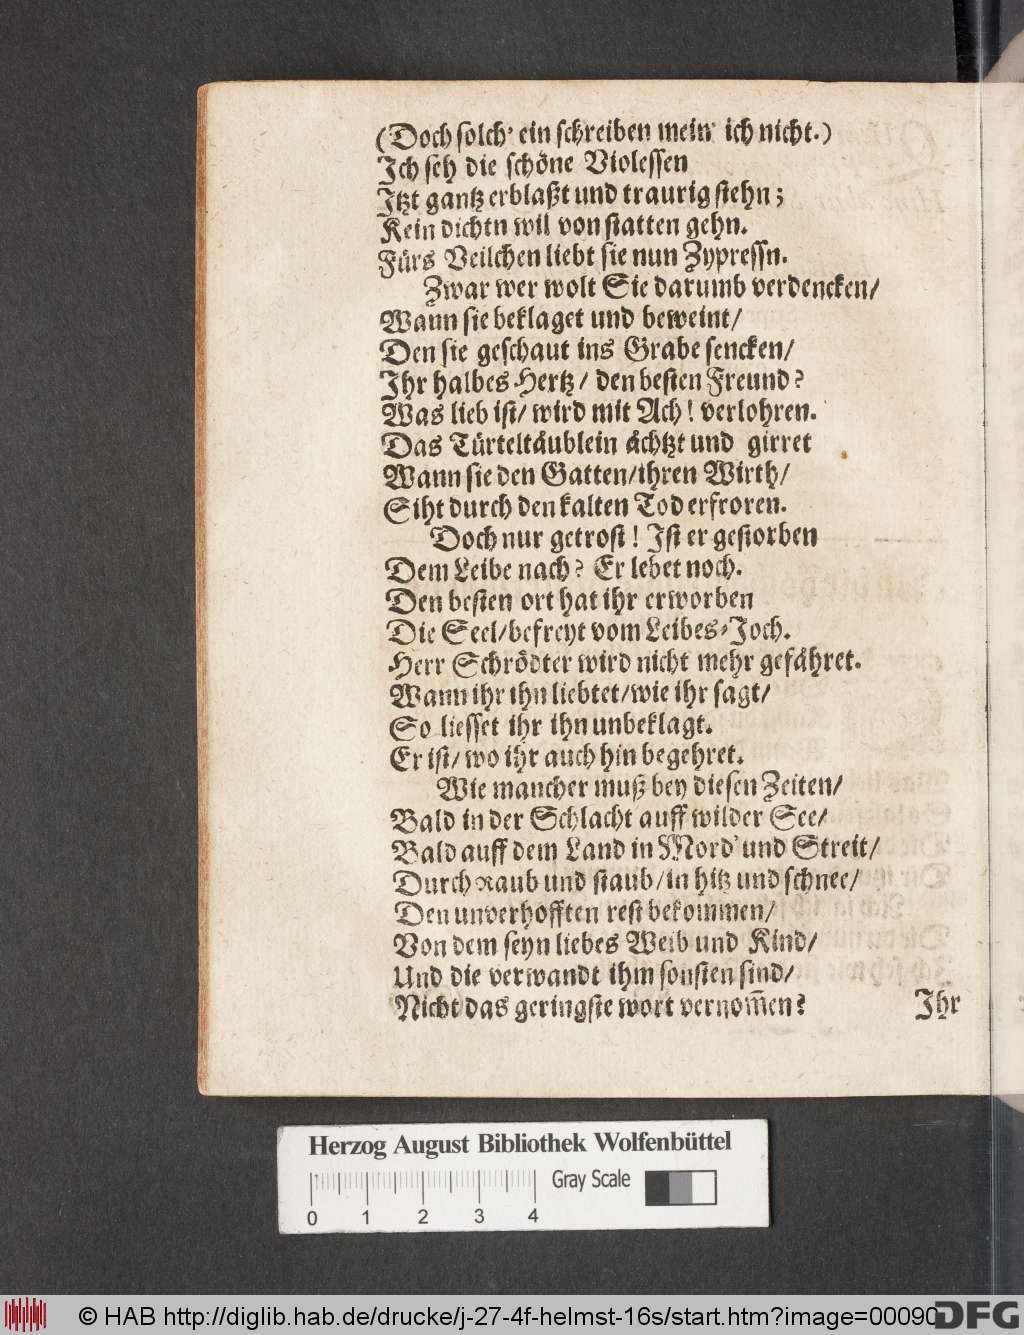 (Doch solch' ein schreiben mein' ich nicht.)
Ich seh die schöne Violessen
Itzt gantz erblaßt und traurig stehn;
Kein dichtn wil von statten gehn.
Fürs Veilchen liebt sie nun Zypressn.
Zwar wer wolt Sie darumb verdencken/
Wann sie beklaget und beweint/
Den sie geschaut ins Grabe sencken/
Ihr halbes Hertz/ den besten Freund?
Was lieb ist/ wird mit Ach! verlohren.
Das Türteltäublein ächtzt und girret
Wann sie den Gatten/ihren Wirth/
Siht durch den kalten Tod erfroren.
Doch nur getrost! Ist er gestorben
Dem Leibe nach? Er lebet noch.
Den besten ort hat ihr erworben
Die Seel/befreyt vom Leibes-Joch.
Herr Schrödter wird nicht mehr gefähret.
Wann ihr ihn liebtet/wie ihr sagt/
So liesset ihr ihn unbeklagt.
Er ist/ wo ihr auch hin begehret.
Wie mancher muß bey diesen Zeiten/
Bald in der Schlacht auff wilder See/
Bald auff dem Land in Mord' und Streit/
Durch raub und staub/in hitz und schnee/
Den unverhofften rest bekommen/
Von dem seyn liebes Weib und Kind/
Und die verwandt ihm sonsten sind/
Nicht das geringste wort vernom̄en?
Ihr
Herzog August Bibliothek Wolfenbüttel
Gray Scale
0 1 2 3 4
© HAB http://diglib.hab.de/drucke/j-27-4f-helmst-16s/start.htm?image=00090
DFG